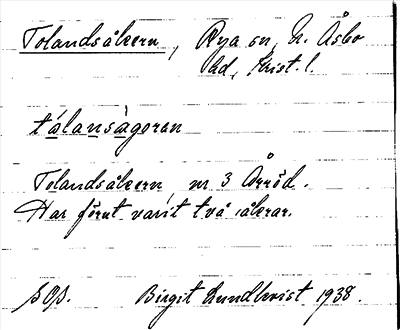 Tolandsåkern, Rya sn, N. Åsbo
hd, Krist. l.
tålansågoran
Tolandsåkern, nr 3 Årröd.
Har förut varit två åkrar.
Birgit Lundkvist 1938.